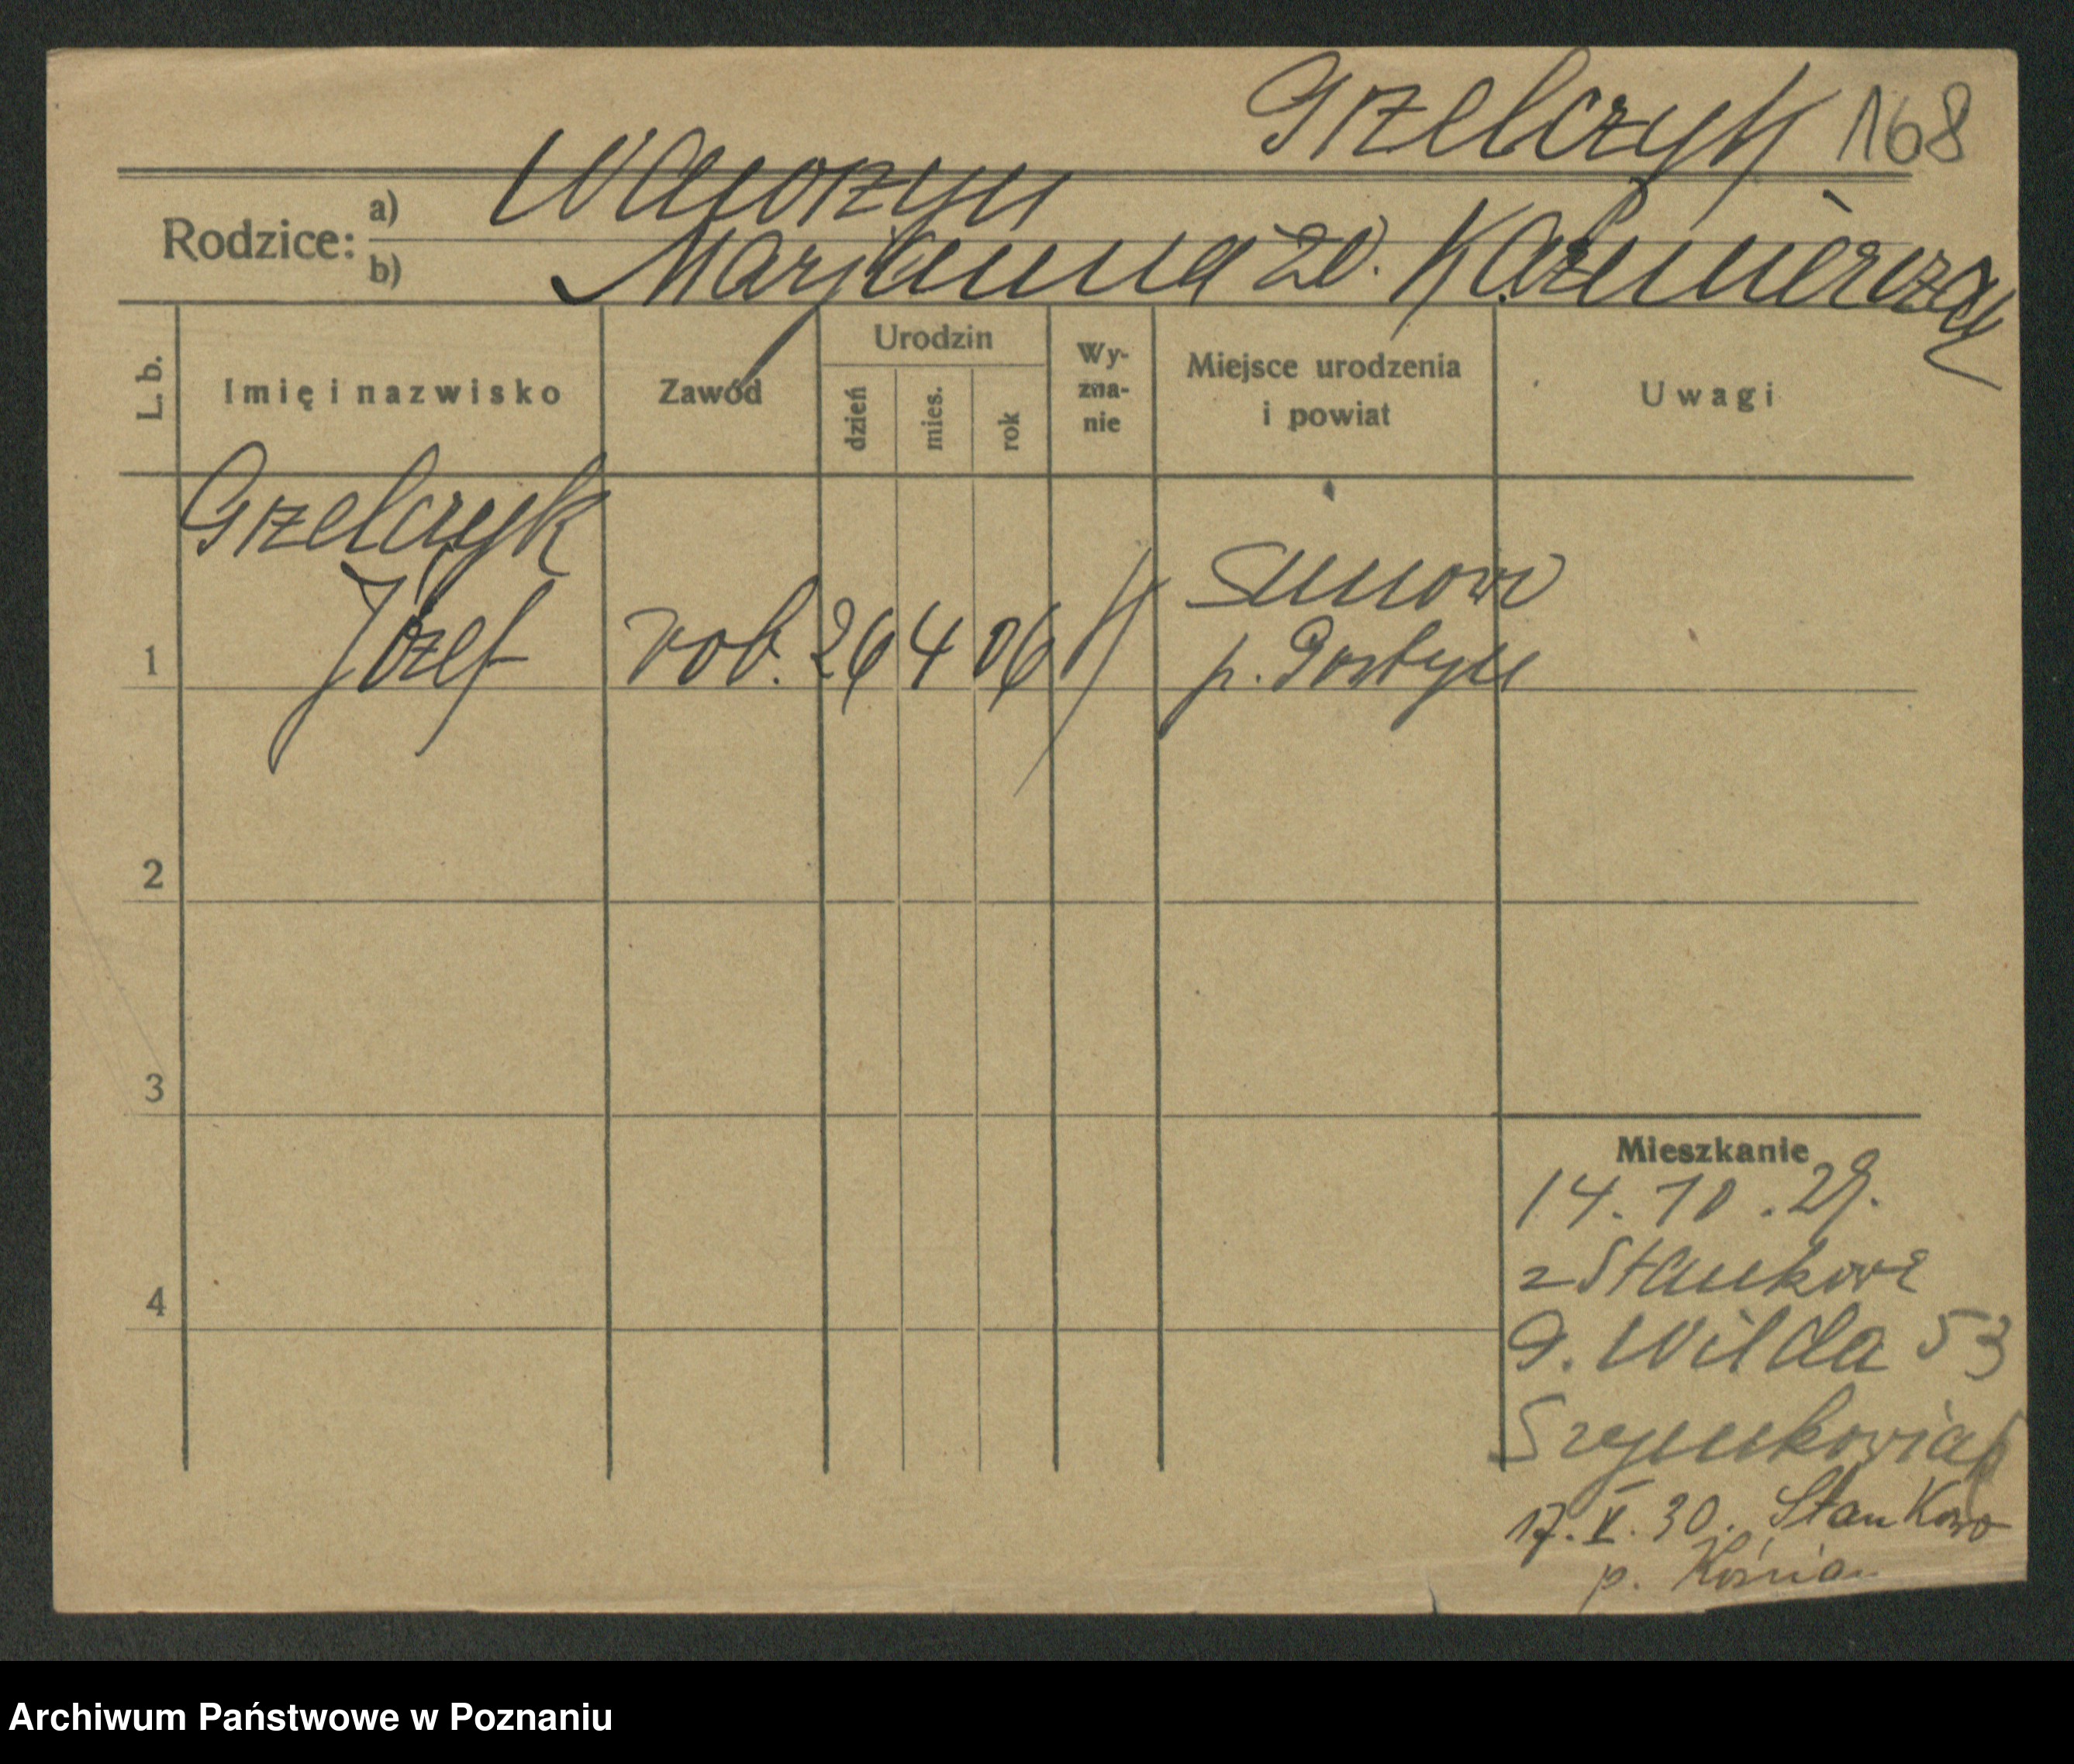 Grzelczyk 168
Rodzice: a) Wawrzyn
b) Marjanna zd. Kaźmierczak
L. b.
Imię i nazwisko
Zawód
Urodzin
dzień
mies.
rok
Wy-
zna-
nie
Miejsce urodzenia
i powiat
Uwagi
Grzelczyk
Józef
1
rob. 26 4 06
p. Gostyń
2
3
4
Mieszkanie
14. 10. 29.
z Stankowa
G. Wilda 53
Szymkowiak
17. V. 30. Stankowo
p. Kościan
Archiwum Państwowe w Poznaniu